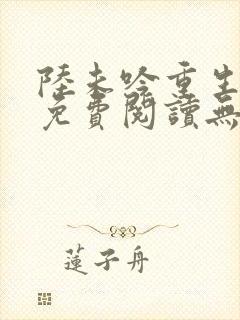 陸未吟重生
免費閱讀無
蓮子舟